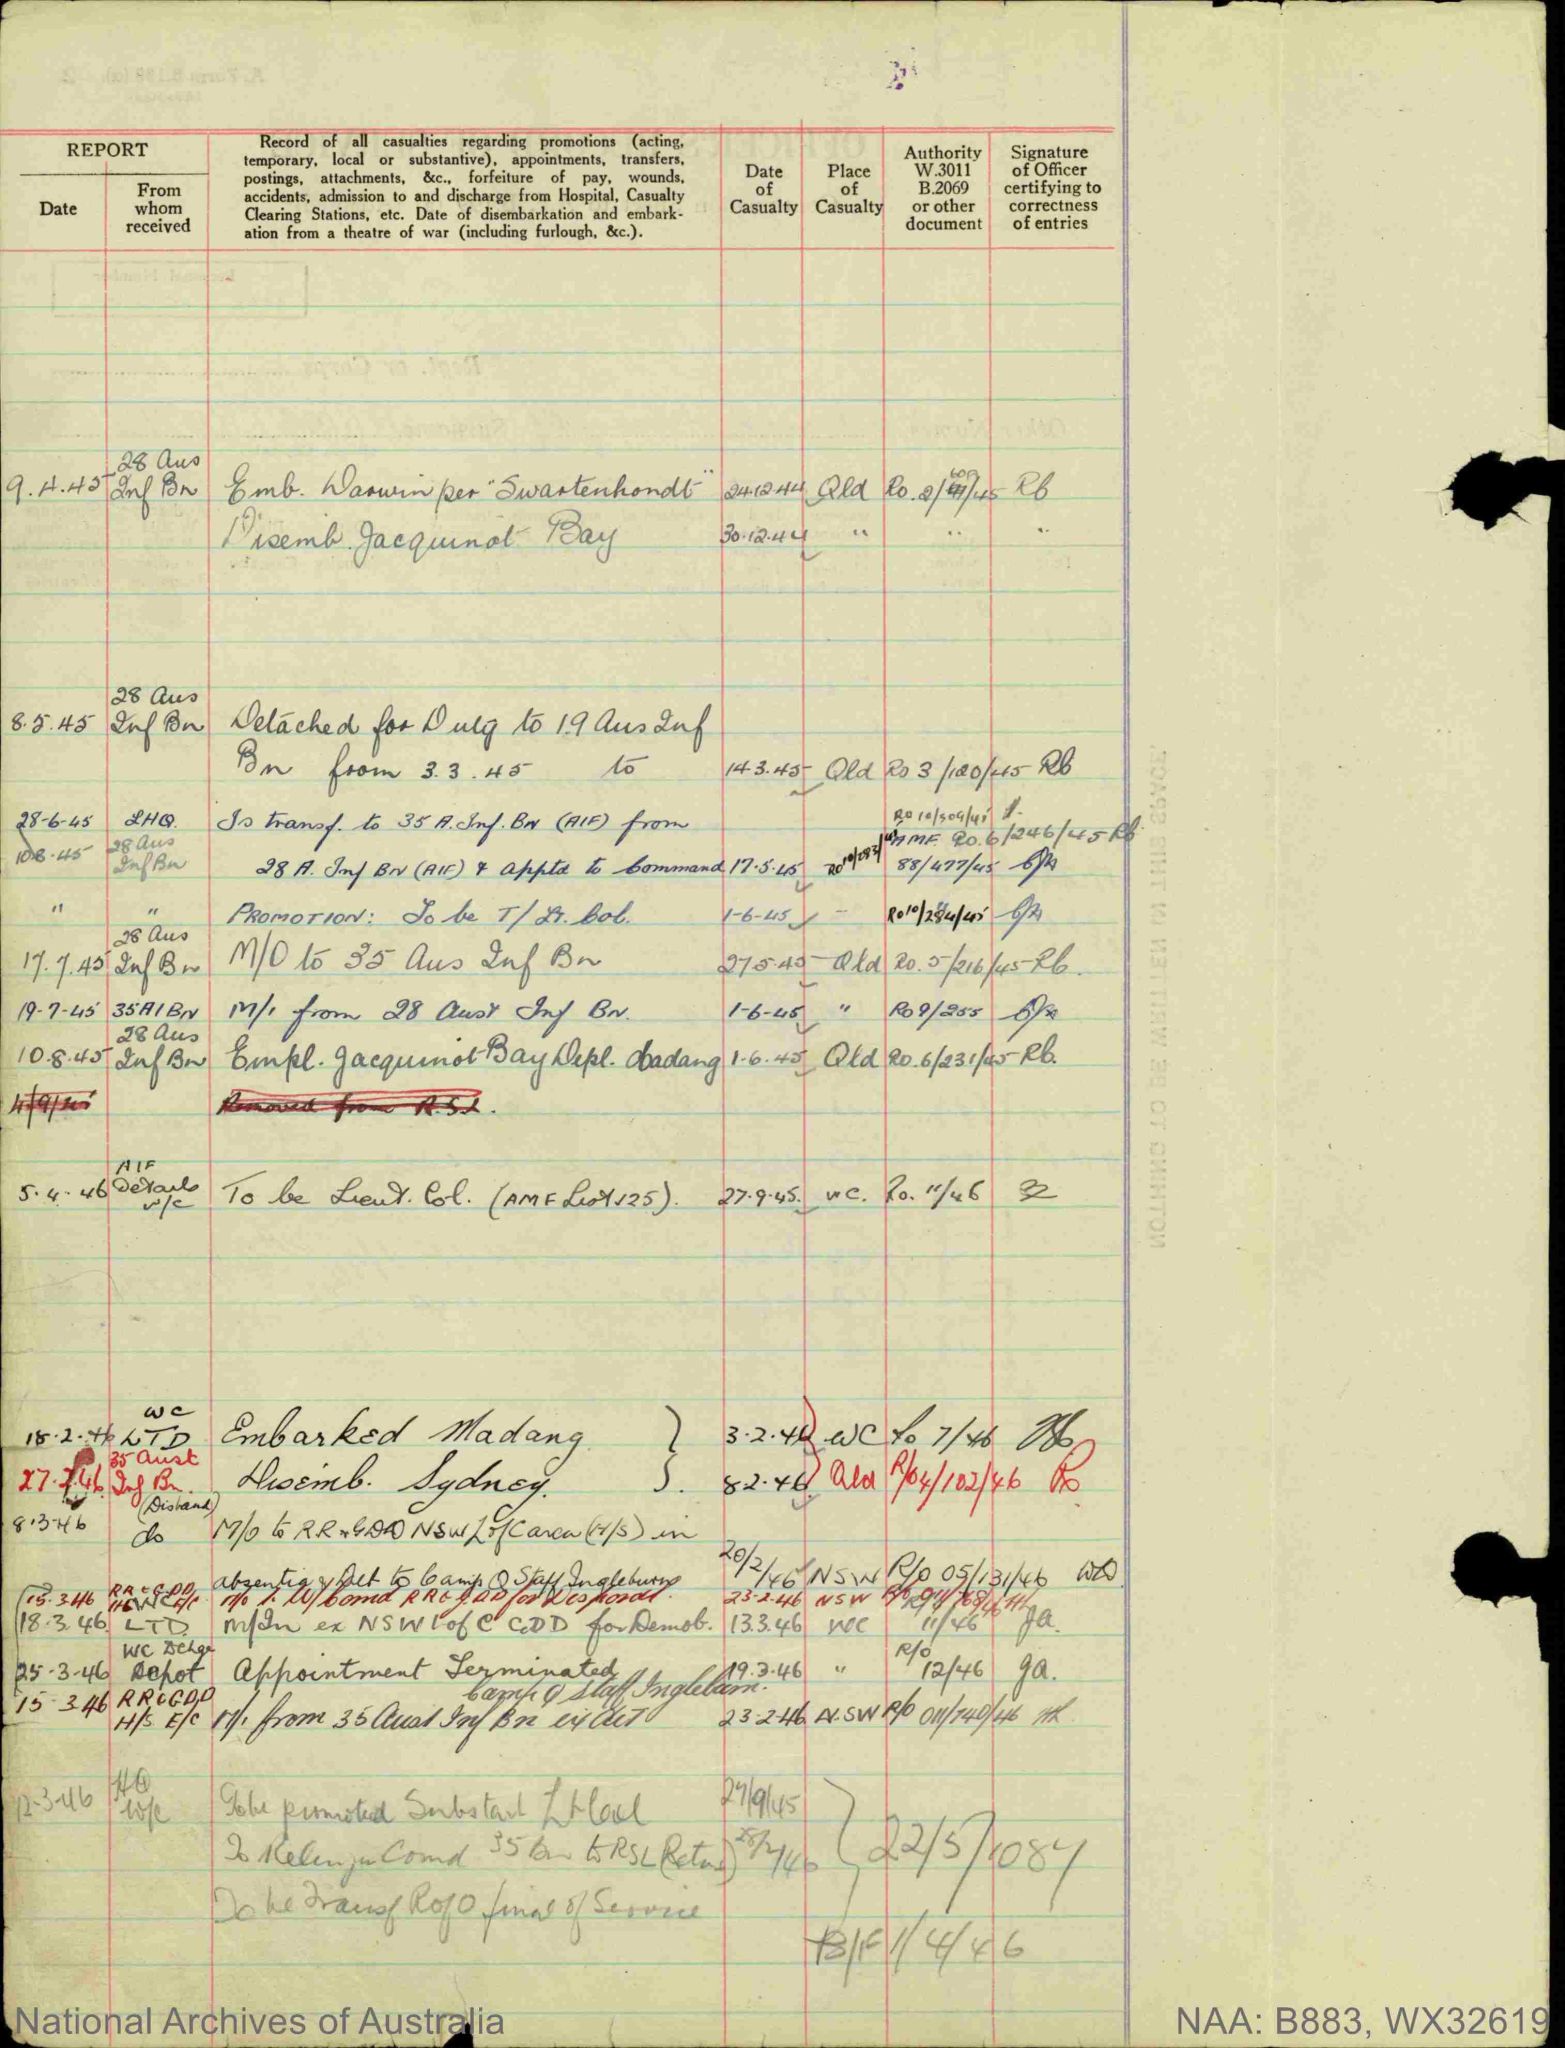 REPORT
Date
From
whom
received
Record of all casualties regarding promotions (acting,
temporary, local or substantive), appointments, transfers,
postings, attachments, &c., forfeiture of pay, wounds,
accidents, admission to and discharge from Hospital, Casualty
Clearing Stations, etc. Date of disembarkation and embark-
ation from a theatre of war (including furlough, &c.).
Date
of
Casualty
Place
of
Casualty
Authority
W.3011
B.2069
or other
document
Signature
of Officer
certifying to
correctness
of entries
28 Aus
9.4.45 Inf Bn Emb. Darwin per "Swartenhondt" 24.12.44 Qld Ro. 2/ /45 Rb
Disemb. Jacquinot Bay 30.12.44 " " "
28 Aus
8.5.45 Inf Bn Detached for Duty to 19 Aus Inf
Bn from 3.3.45 to 14.3.45 Qld Ro 3/120/45 Rb
28-6-45 LHQ. Is transf. to 35 A. Inf. Bn (AIF) from
10.8.45 28 Aus Inf Bn AMF Ro. 6/246/45 Rb
28 A. Inf Bn (AIF) & Apptd to Command 17.5.45 88/477/45
" " PROMOTION: To be T/Lt. Col. 1-6-45 -
28 Aus
17.7.45 Inf Bn M/O to 35 Aus Inf Bn 27.5.45 Qld Ro. 5/216/45 Rb.
19-7-45 35 A I Bn M/I from 28 Aust Inf Bn. 1-6-45 " Ro 9/255
28 Aus
10.8.45 Inf Bn Empl. Jacquinot Bay Depl. Madang 1.6.45 Qld Ro. 6/231/45 Rb.
4/9/45 Removed from R.S.L.
AIF
5.4.46 Details w/c To be Lieut. Col. (AMF List 125). 27.9.45. WC. Ro. 11/46
WC
18.2.46 LTD Embarked Madang 3.2.46 WC Ro 7/46
35 Aust
27.2.46 Inf Bn. Disemb. Sydney. 8.2.46 Qld R/o 4/102/46
(Disband)
8.3.46 do M/O to RR & GDD NSW L of C area (H/S) in
absentia & Det to Camp Q Staff Ingleburn 20/2/46 NSW R/O 05/131/46
15.3.46 RR & GDD 23.2.46 NSW
18.3.46 LTD M/In ex NSW L of C GDD for Demob. 13.3.46 WC 11/46 ga.
WC Dchge
25-3-46 Depot Appointment Terminated 19.3.46 " R/O 12/46 ga.
Camp Q Staff Ingleburn.
15.3.46 RR & GDD H/S E/C M/I from 35 Aust Inf Bn ex det 23.2.46 N.SW R/o 011/740/46
12-3-46 HQ W/C To be promoted Substant Lt Col 27/9/45
To Relinq Comd 35 Bn to RSL 22/5/1084
To be Transf R of O final of Service
B/F 1/4/46
NOTHING TO BE WRITTEN IN THIS SPACE
National Archives of Australia
NAA: B883, WX32619